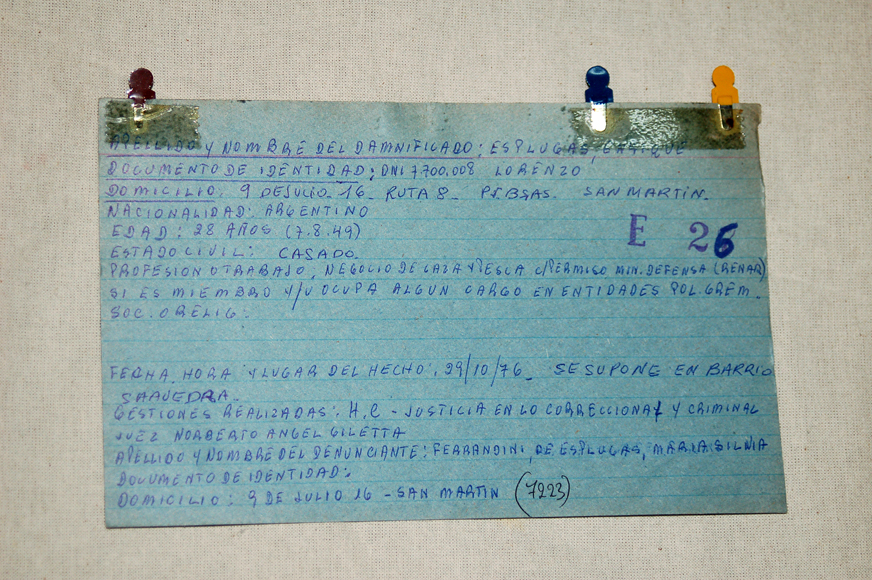 APELLIDO Y NOMBRE DEL DAMNIFICADO: ESPLUGAS,
DOCUMENTO DE IDENTIDAD: DNI 7.700.008 LORENZO
DOMICILIO: 9 DE JULIO 16 RUTA 8 PV. BSAS. SAN MARTIN.
NACIONALIDAD: ARGENTINO
EDAD: 28 AÑOS (7.8.49)
E 26
ESTADO CIVIL: CASADO.
PROFESION O TRABAJO, NEGOCIO DE CAZA Y PESCA C/PERMISO MIN. DEFENSA (RENAR)
SI ES MIEMBRO Y/U OCUPA ALGUN CARGO EN ENTIDADES POL. GREM.
SOC. O RELIG:
FECHA, HORA Y LUGAR DEL HECHO: 29/10/76_ SE SUPONE EN BARRIO
SAAVEDRA_
GESTIONES REALIZADAS: H.C - JUSTICIA EN LO CORRECCIONAL Y CRIMINAL
JUEZ NORBERTO ANGEL GILETTA
APELLIDO Y NOMBRE DEL DENUNCIANTE: FERRANDINI, DE ESPLUGAS, MARIA SILVIA
DOCUMENTO DE IDENTIDAD:
DOMICILIO: 9 DE JULIO 16 - SAN MARTIN (7223)